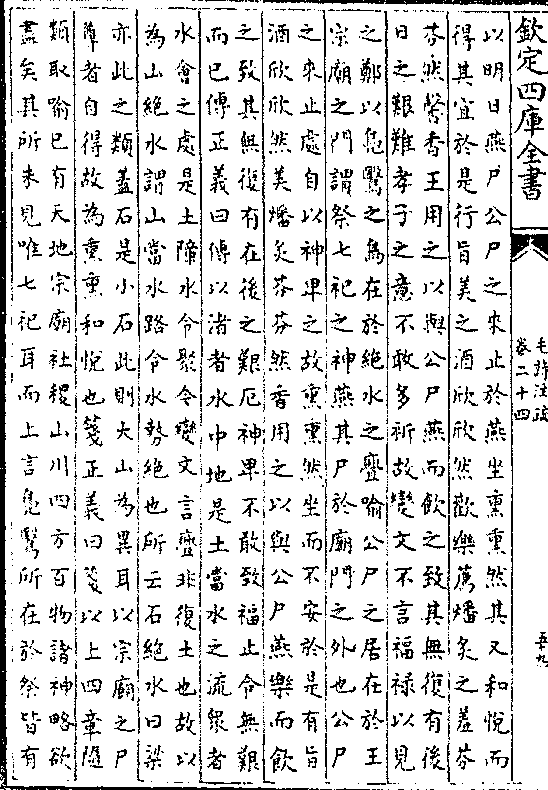 欽定四庫全書
毛詩注疏
卷二十四
五九
以明日燕尸公尸之來止於燕坐熏熏然其又和悅而
得其宜於是行旨美之酒欣欣然歡樂薦燔炙之羞芬
芬然馨香王用之以與公尸燕而飲之致其無復有後
日之艱難孝子之意不敢多祈故變文不言福祿以見
之鄭以鳧鷖之鳥在於絶水之亹喻公尸之居在於王
宗廟之門謂祭七祀之神燕其尸於廟門之外也公尸
之來止處自以神卑之故熏熏然坐而不安於是有旨
酒欣欣然美燔炙芬芬然香用之以與公尸燕樂而飲
之致其無復有在後之艱厄神卑不敢致福止令無艱
而已傳正義曰傳以渚者水中地是土當水之流衆者
水會之處是土障水令聚令變文言亹非復土也故以
為山絶水謂山當水路令水勢絶也所云石絶水曰梁
亦此之類葢石是小石此則大山為異耳以宗廟之尸
卑者自得故為熏熏和悅也箋正義曰箋以上四章隨
類取喻已有天地宗廟社稷山川四方百物諸神略欲
盡矣其所未見唯七祀耳而上言鳧鷖所在於祭皆有